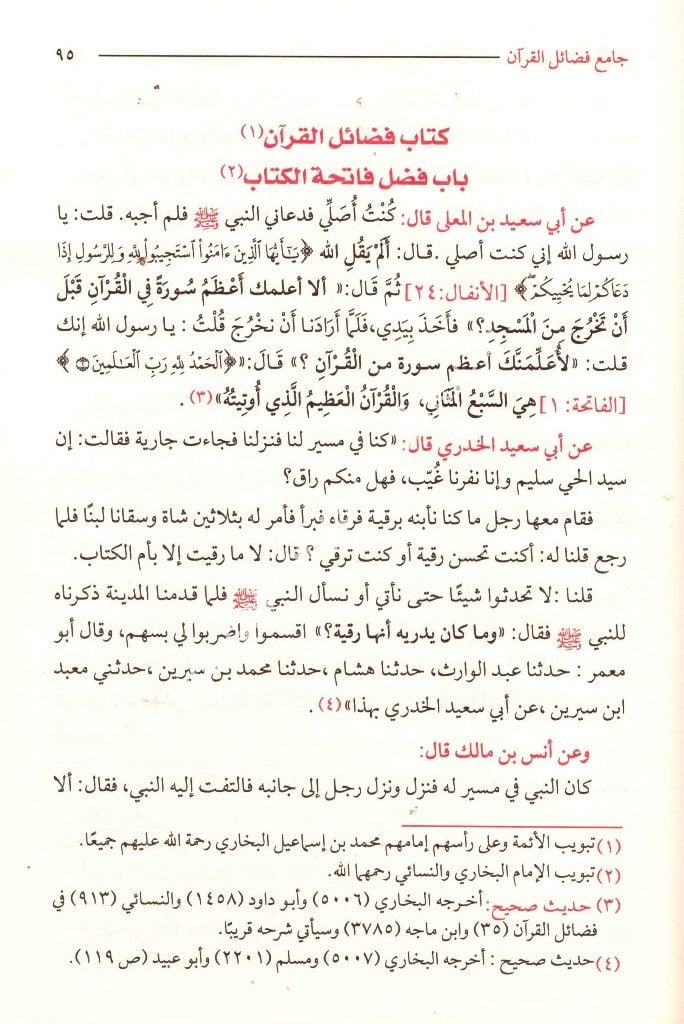 جامع فضائل القرآن ٩٥
كتاب فضائل القرآن(١)
باب فضل فاتحة الكتاب(٢)
عن أبي سعيد بن المعلى قال: كُنْتُ أُصَلِّي فدعاني النبي ﷺ فلم أجبه. قلت: يا
رسول الله إني كنت أصلي .قال: أَلَمْ يَقُلِ الله ﴿يَٰٓأَيُّهَا ٱلَّذِينَ ءَامَنُوا۟ ٱسْتَجِيبُوا۟ لِلَّهِ وَلِلرَّسُولِ إِذَا
دَعَاكُمْ لِمَا يُحْيِيكُمْ﴾ [الأنفال:٢٤] ثُمَّ قَالَ:« ألا أعلمك أَعْظَمُ سُورَةً فِي الْقُرْآنِ قَبْلَ
أَنْ تَخْرُجَ مِنَ الْمَسْجِدِ؟» فَأَخَذَ بِيَدِي،فَلَمَّا أَرَادَنَا أَنْ نخْرُجَ قُلْتُ : يا رسول الله إنك
قلت: «لأُعَلِّمَنَّكَ أعظم سورة من الْقُرْآنِ ؟» قَالَ:«﴿ٱلْحَمْدُ لِلَّهِ رَبِّ ٱلْعَٰلَمِينَ﴾
[الفاتحة: ١] هِيَ السَّبْعُ الْمَثَانِي، وَالْقُرْآنُ الْعَظِيمُ الَّذِي أُوتِيتُهُ»(٣) .
عن أبي سعيد الخدري قال: «كنا في مسير لنا فنزلنا فجاءت جارية فقالت: إن
سيد الحي سليم وإنا نفرنا غُيّب، فهل منكم راق؟
فقام معها رجل ما كنا نأبنه برقية فرقاه فبرأ فأمر له بثلاثين شاة وسقانا لبنًا فلما
رجع قلنا له: أكنت تحسن رقية أو كنت ترقي ؟ قال: لا ما رقيت إلا بأم الكتاب.
قلنا :لا تحدثوا شيئًا حتى نأتي أو نسأل النبي ﷺ فلما قدمنا المدينة ذكرناه
للنبي ﷺ فقال: «وما كان يدريه أنها رقية؟» اقسموا واضربوا لي بسهم، وقال أبو
معمر : حدثنا عبد الوارث، حدثنا هشام ،حدثنا محمد بن سيرين ،حدثني معبد
ابن سيرين ،عن أبي سعيد الخدري بهذا»(٤) .
وعن أنس بن مالك قال:
كان النبي في مسير له فنزل ونزل رجل إلى جانبه فالتفت إليه النبي، فقال: ألا
(١) تبويب الأئمة وعلى رأسهم إمامهم محمد بن إسماعيل البخاري رحمة الله عليهم جميعًا.
(٢) تبويب الإمام البخاري والنسائي رحمهما الله.
(٣) حديث صحيح: أخرجه البخاري (٥٠٠٦) وأبو داود (١٤٥٨) والنسائي (٩١٣) في
فضائل القرآن (٣٥) وابن ماجه (٣٧٨٥) وسيأتي شرحه قريبًا.
(٤) حديث صحيح : أخرجه البخاري (٥٠٠٧) ومسلم (٢٢٠١) وأبو عبيد (ص ١١٩).